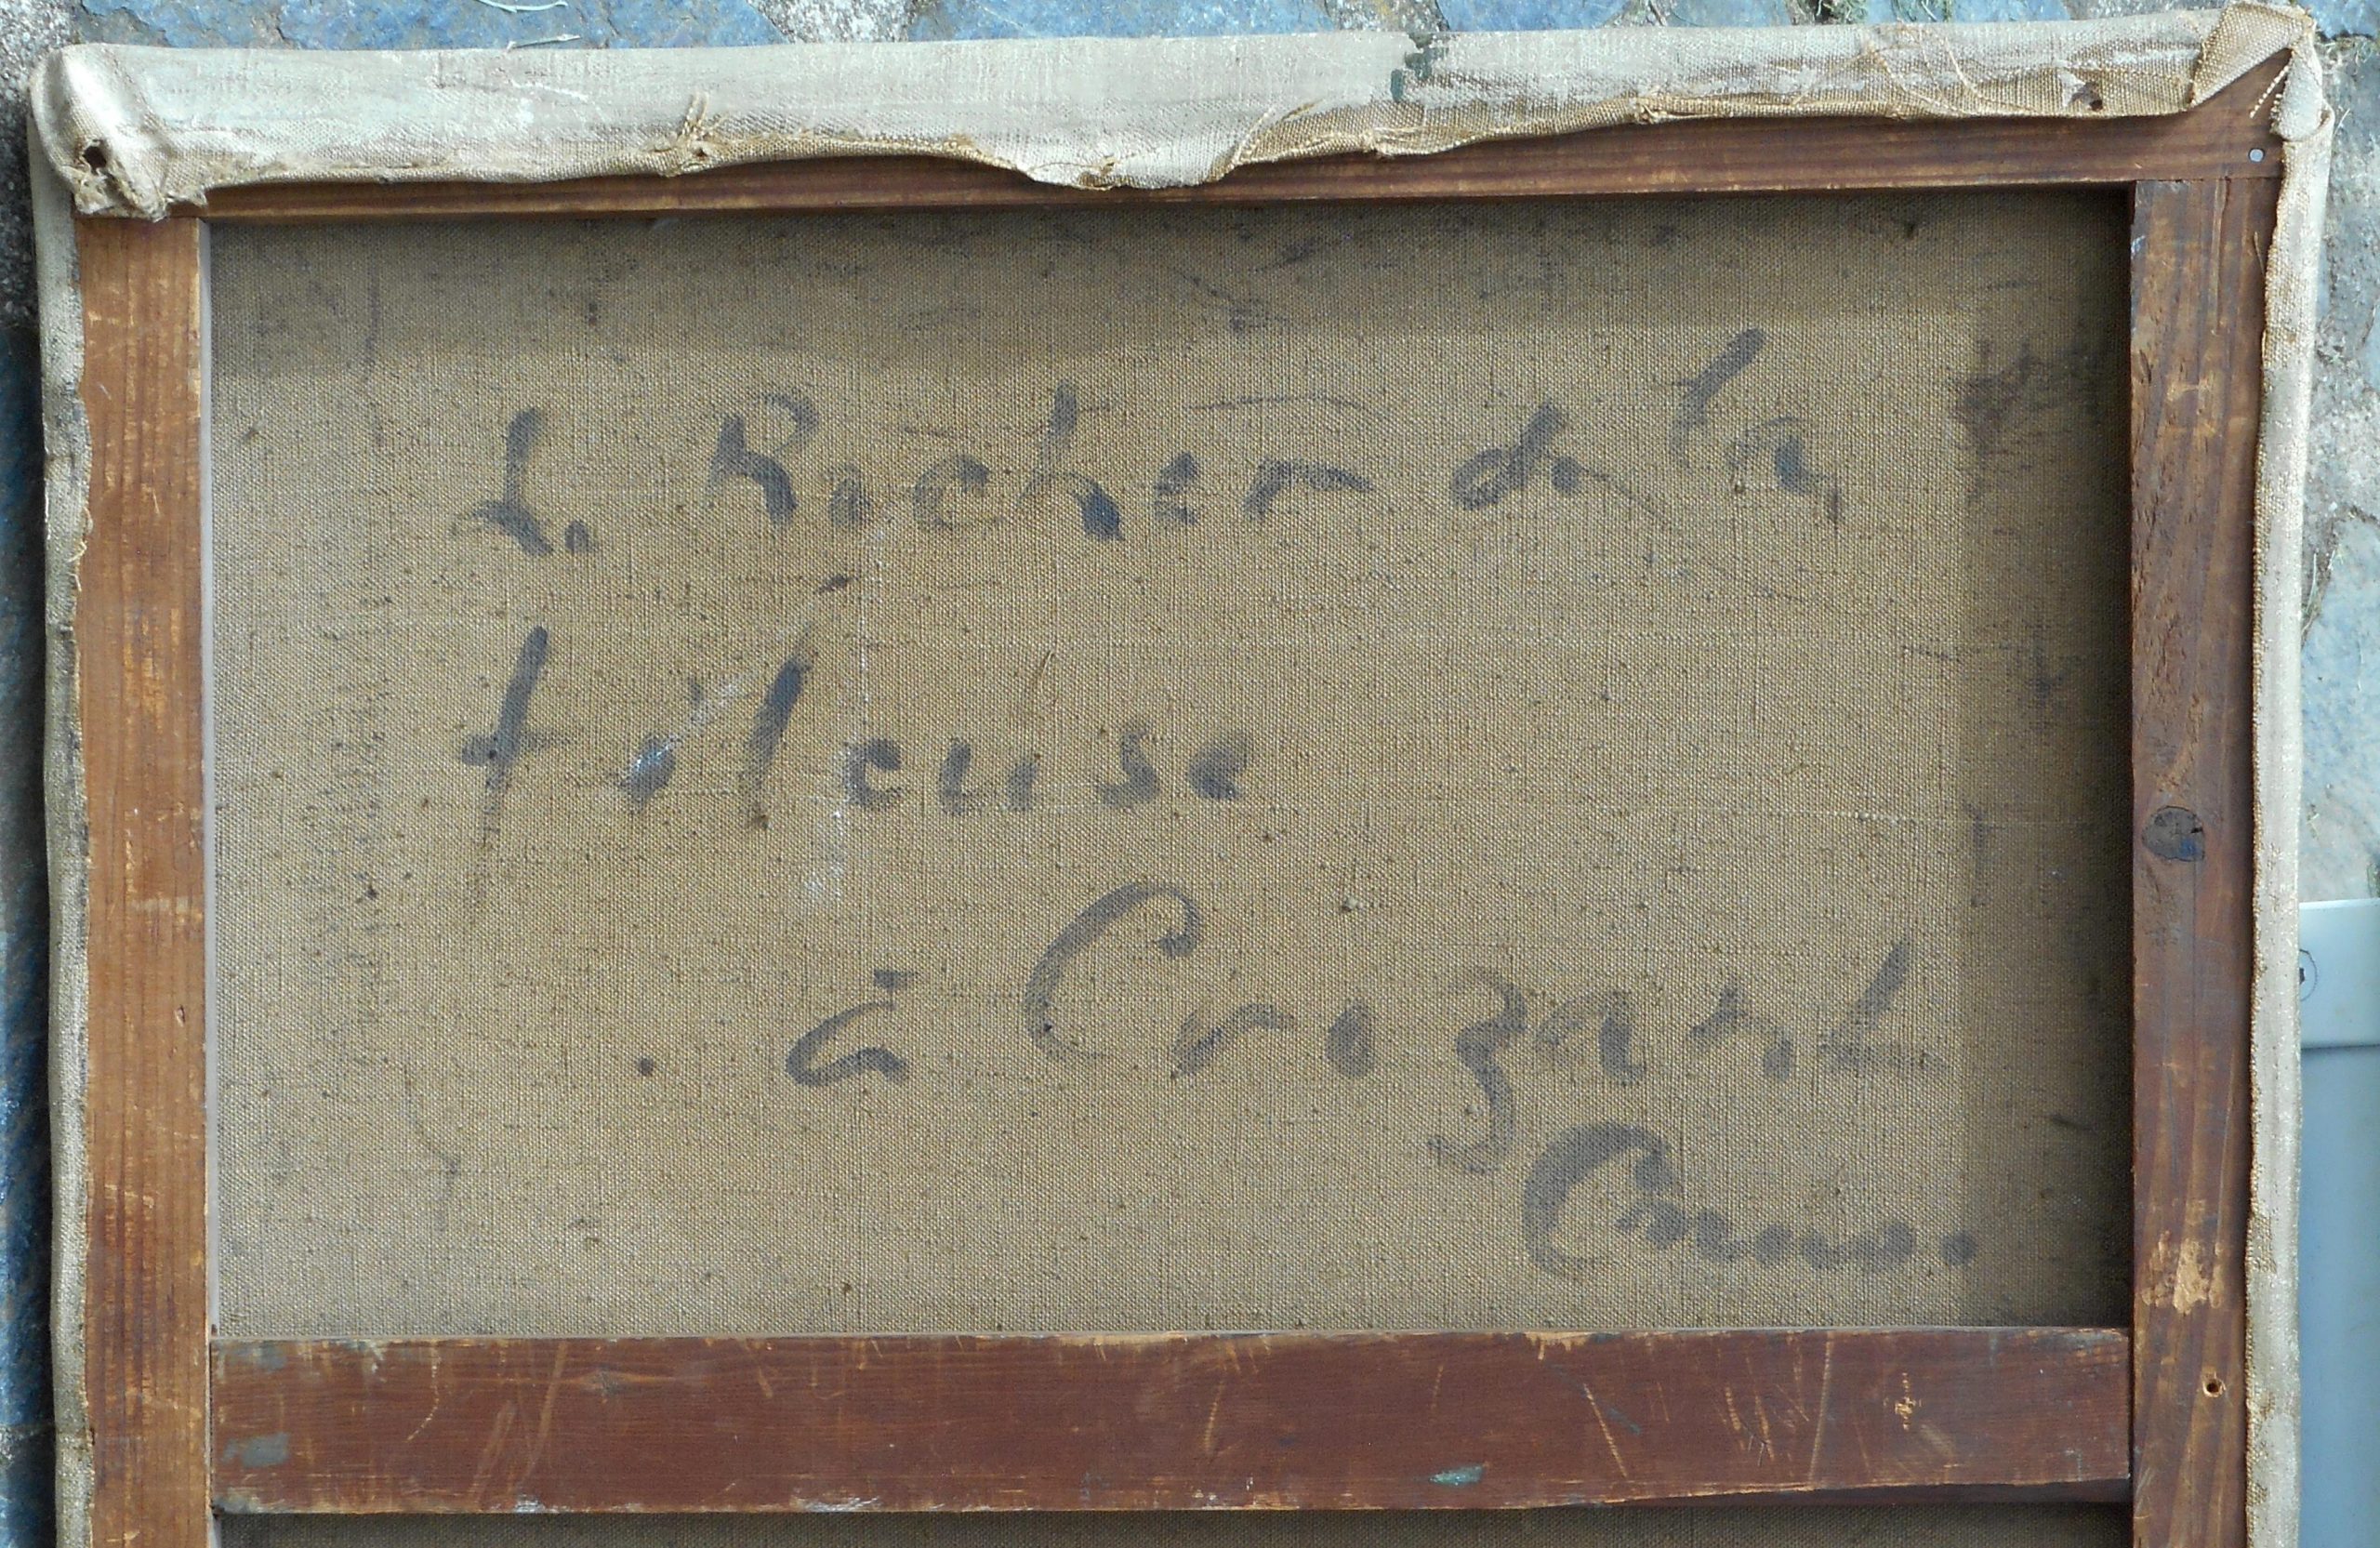 Le Rocher de la
fileuse
à Crozant
Creuse.